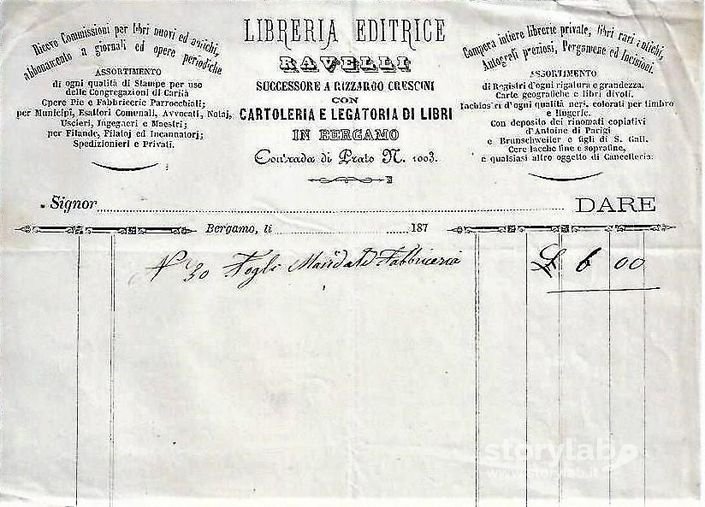 Riceve Commissioni per libri nuovi ed antichi,
abbonamento a giornali ed opere periodiche
ASSORTIMENTO
di ogni qualità di Stampe per uso
delle Congregazioni di Carità
Opere Pie e Fabbricerie Parrocchiali;
per Municipi, Esattori Comunali, Avvocati, Notai,
Uscieri, Ingegneri e Maestri;
per Filande, Filatoj ed Incannatori;
Spedizionieri e Privati.
LIBRERIA EDITRICE
RAVELLI
SUCCESSORE A RIZZARDO CRESCINI
CON
CARTOLERIA E LEGATORIA DI LIBRI
IN BERGAMO
Contrada di Prato N. 1003.
Compera intiere librerie private, libri rari antichi,
Autografi preziosi, Pergamene ed Incisioni.
ASSORTIMENTO
di Registri d'ogni rigatura e grandezza.
Carte geografiche e libri divoti.
Inchiostri d'ogni qualità neri, colorati per timbro
e lingerie.
Con deposito dei rinomati copiativi
d'Antoine di Parigi
e Brunschweiler e figli di S. Gall.
Cere lacche fine e soprafine,
e qualsiasi altro oggetto di Cancelleria.
Signor
DARE
Bergamo, li 187
N° 30 Fogli Mandati Fabbriceria £ 6 00
storylab
www.storylab.it